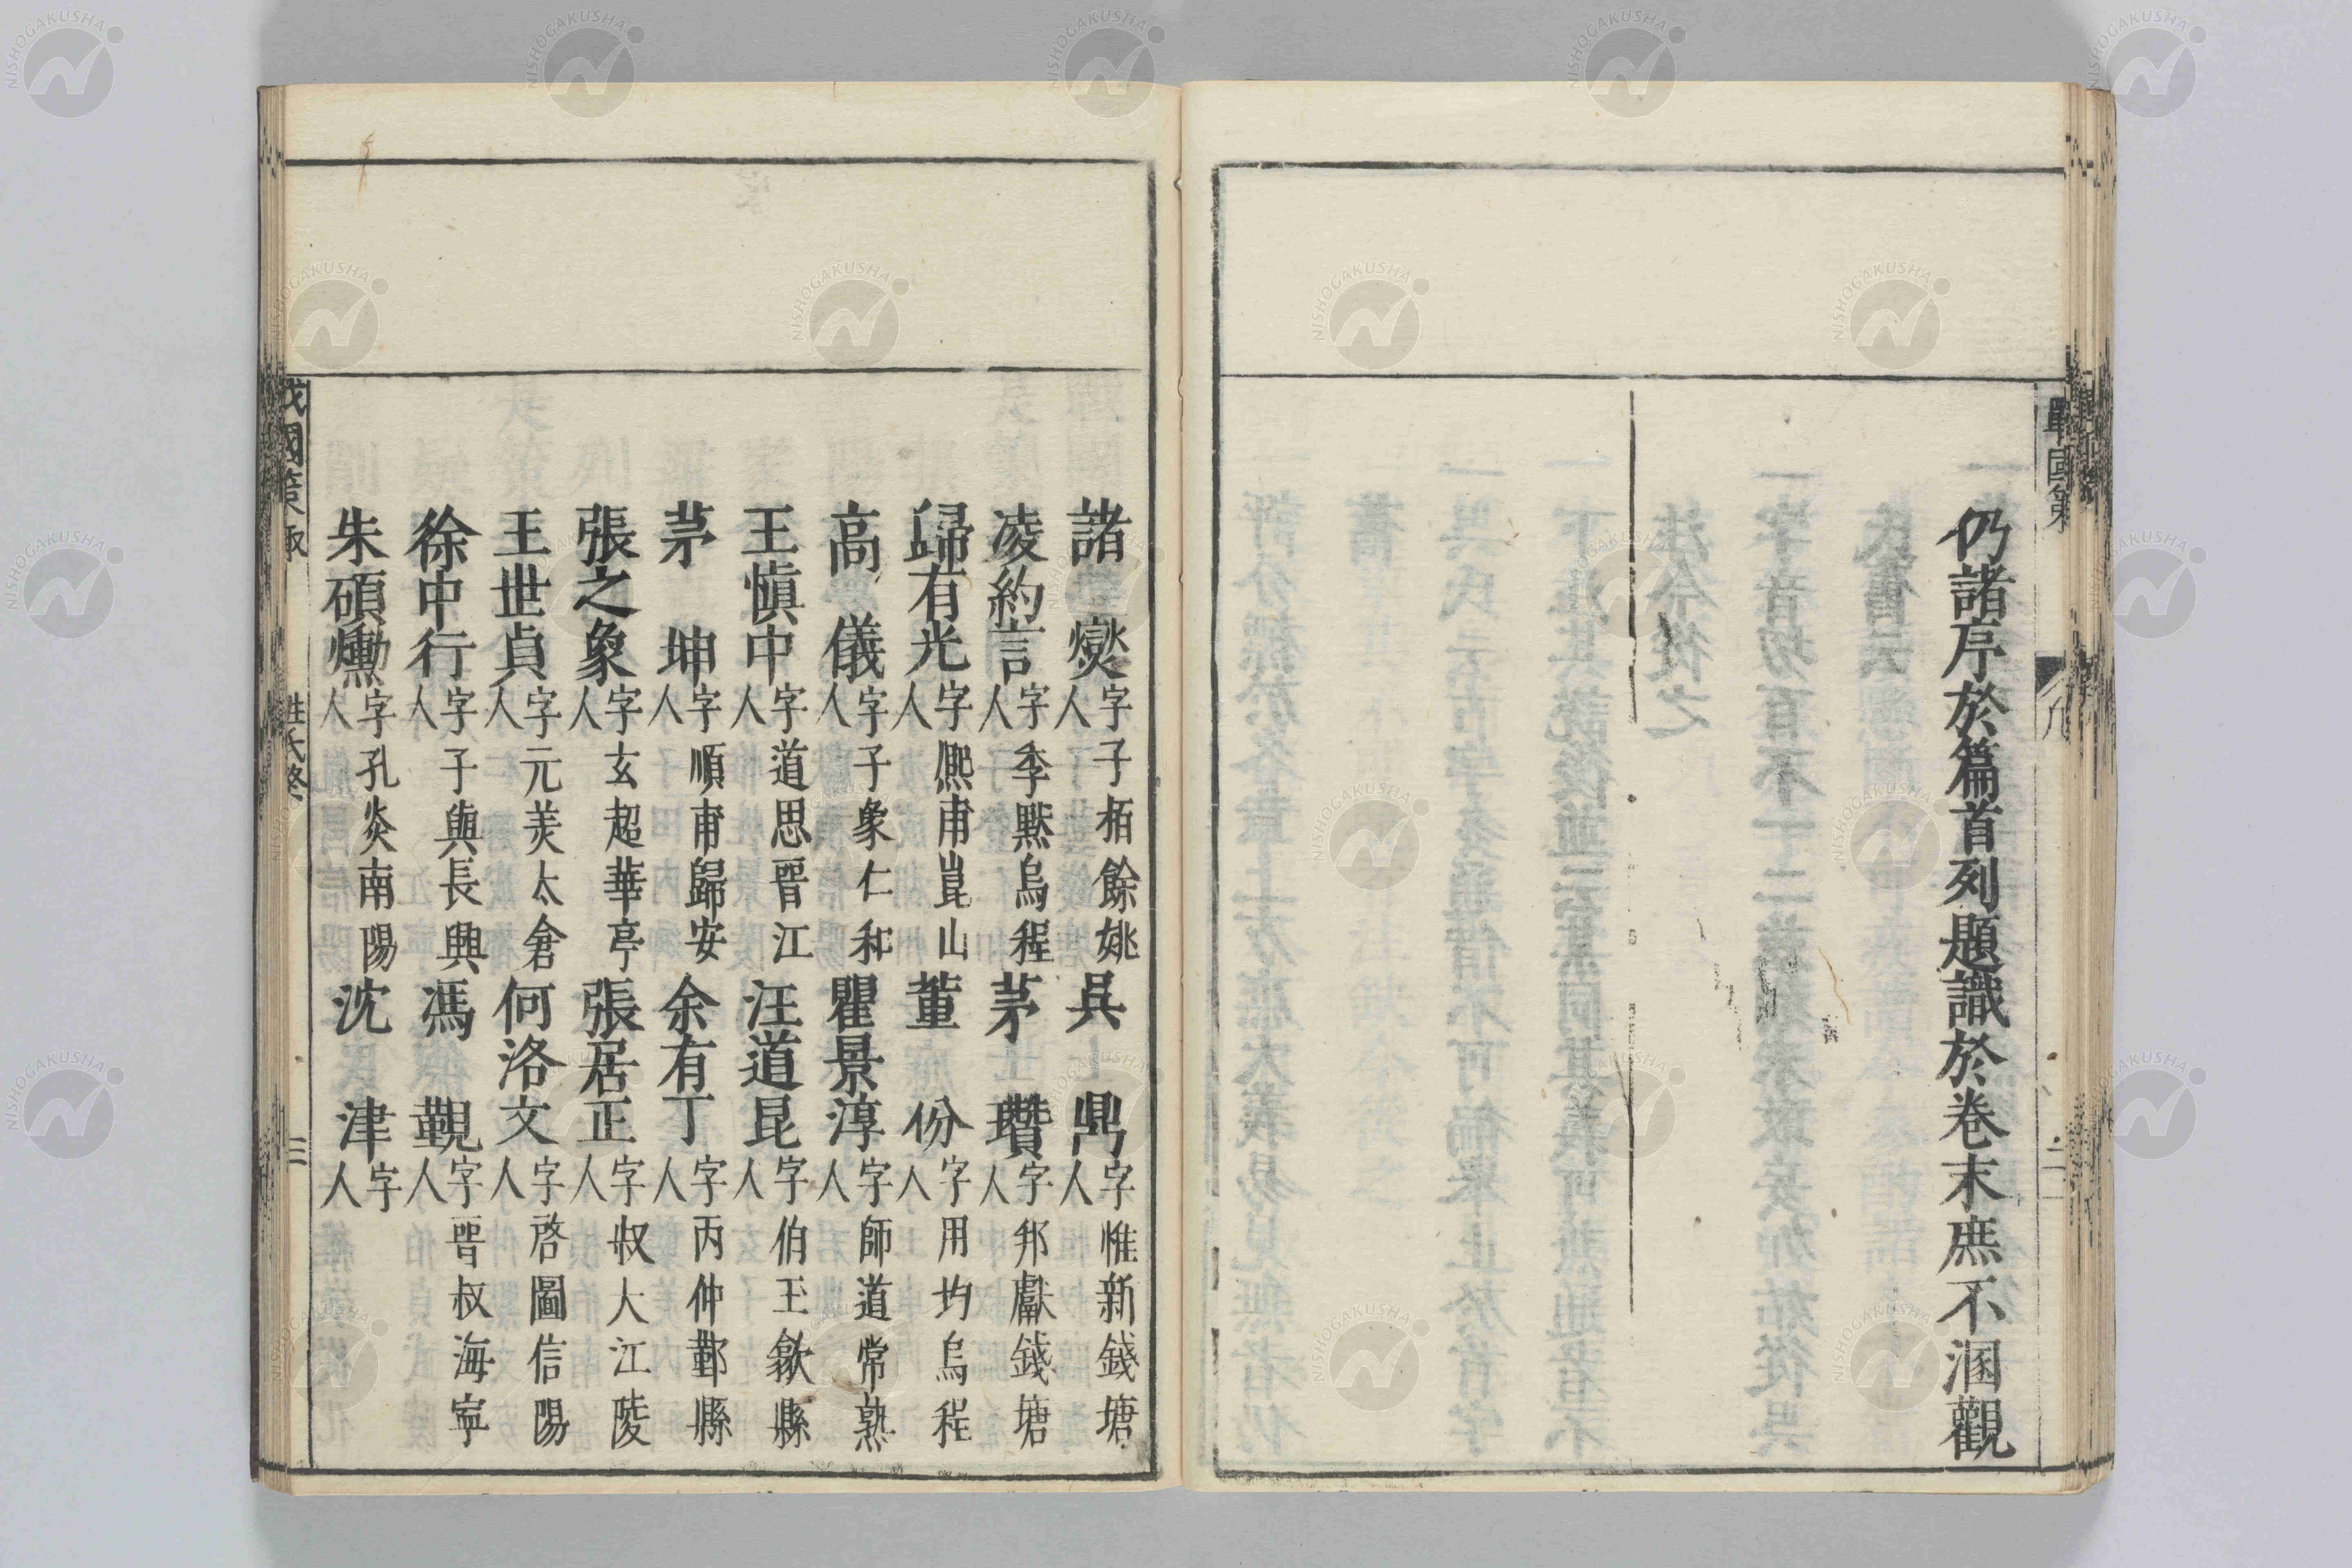 戰國策
仍諸序於篇首列題識於卷末庶不溷觀
諸燮字子栢餘姚人 吳鼎字惟新錢塘人
凌約言字季默烏程人 茅瓚字邦獻錢塘人
歸有光字熈甫崑山人 董份字用均烏程人
高儀字子象仁和人 瞿景淳字師道常熟人
王慎中字道思晉江人 汪道昆字伯玉歙縣人
茅坤字順甫歸安人 余有丁字丙仲鄞縣人
張之象字玄超華亭人 張居正字叔大江陵人
王世貞字元美太倉人 何洛文字啓圖信陽人
徐中行字子與長興人 馮覲字晉叔海寧人
朱碩爋字孔炎南陽人 沈津字人
姓氏終
三
NISHOGAKUSHA